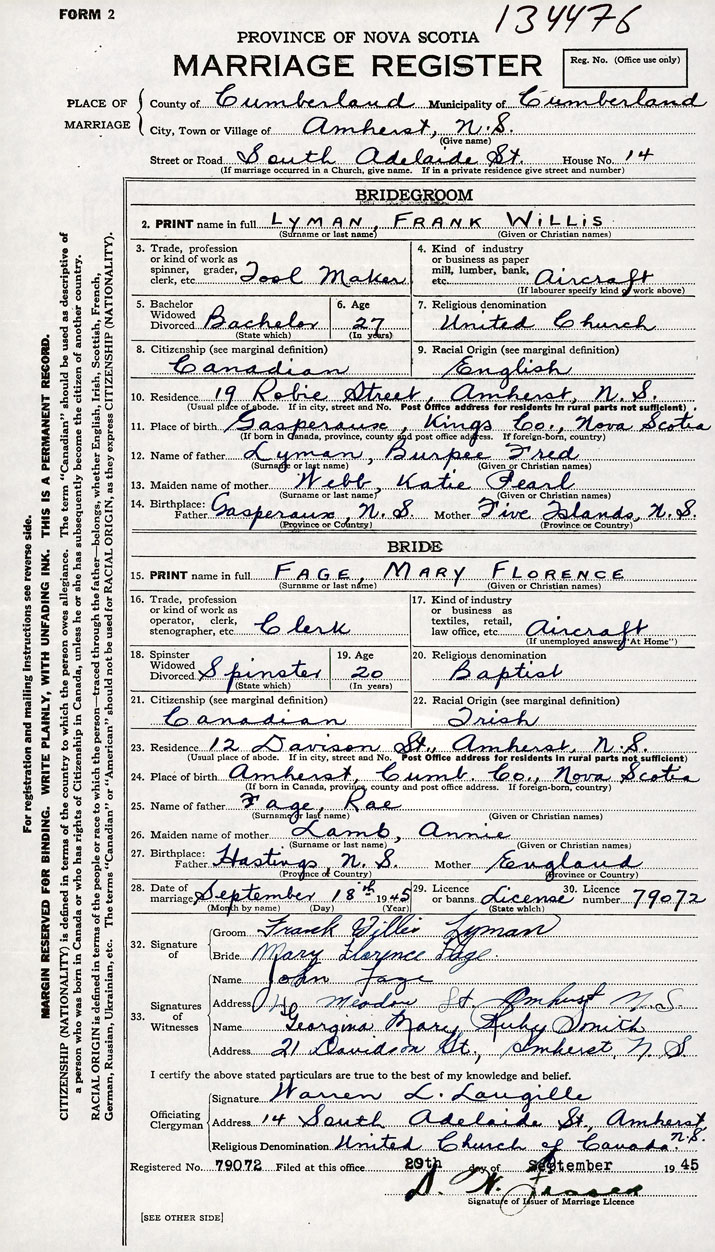 FORM 2
134476
PROVINCE OF NOVA SCOTIA
MARRIAGE REGISTER
Reg. No. (Office use only)
PLACE OF MARRIAGE
County of Cumberland Municipality of Cumberland
City, Town or Village of Amherst, N.S.
(Give name)
Street or Road South Adelaide St. House No. 14
(If marriage occurred in a Church, give name. If in a private residence give street and number)
BRIDEGROOM
2. PRINT name in full LYMAN, FRANK WILLIS
(Surname or last name) (Given or Christian names)
3. Trade, profession or kind of work as spinner, grader, clerk, etc. Tool Maker
4. Kind of industry or business as paper mill, lumber, bank, etc. Aircraft
(If labourer specify kind of work above)
5. Bachelor Widowed Divorced Bachelor
(State which)
6. Age 27
(In years)
7. Religious denomination United Church
8. Citizenship (see marginal definition) Canadian
9. Racial Origin (see marginal definition) English
10. Residence 19 Robie Street, Amherst, N.S.
(Usual place of abode. If in city, street and No. Post Office address for residents in rural parts not sufficient)
11. Place of birth Gasperaux, Kings Co., Nova Scotia
(If born in Canada, province, county and post office address. If foreign-born, country)
12. Name of father Lyman, Burpee Fred
(Surname or last name) (Given or Christian names)
13. Maiden name of mother Webb, Katie Pearl
(Surname or last name) (Given or Christian names)
14. Birthplace: Father Gasperaux, N.S. Mother Five Islands, N.S.
(Province or Country) (Province or Country)
BRIDE
15. PRINT name in full FAGE, MARY FLORENCE
(Surname or last name) (Given or Christian names)
16. Trade, profession or kind of work as operator, clerk, stenographer, etc. Clerk
17. Kind of industry or business as textiles, retail, law office, etc. Aircraft
(If unemployed answer "At Home")
18. Spinster Widowed Divorced Spinster
(State which)
19. Age 20
(In years)
20. Religious denomination Baptist
21. Citizenship (see marginal definition) Canadian
22. Racial Origin (see marginal definition) Irish
23. Residence 12 Davison St., Amherst, N.S.
(Usual place of abode. If in city, street and No. Post Office address for residents in rural parts not sufficient)
24. Place of birth Amherst, Cumb. Co., Nova Scotia
(If born in Canada, province, county and post office address. If foreign-born, country)
25. Name of father Fage, Rae
(Surname or last name) (Given or Christian names)
26. Maiden name of mother Lamb, Annie
(Surname or last name) (Given or Christian names)
27. Birthplace: Father Hastings, N.S. Mother England
(Province or Country) (Province or Country)
28. Date of marriage September 18th 1945
(Month by name) (Day) (Year)
29. Licence or banns License
(State which)
30. Licence number 79072
32. Signature of
Groom Frank Willis Lyman
Bride Mary Florence Fage.
33. Signatures of Witnesses
Name John Fage
Address Meadow St. Amherst N.S.
Name Georgina Mary Ruby Smith
Address 21 Davidson St., Amherst, N S
I certify the above stated particulars are true to the best of my knowledge and belief.
Officiating Clergyman
Signature Warren L. Laugille
Address 14 South Adelaide St, Amherst, N.S.
Religious Denomination United Church of Canada.
Registered No. 79072 Filed at this office 20th day of September 1945
Signature of Issuer of Marriage Licence
[SEE OTHER SIDE]
For registration and mailing instructions see reverse side.
MARGIN RESERVED FOR BINDING. WRITE PLAINLY, WITH UNFADING INK. THIS IS A PERMANENT RECORD.
CITIZENSHIP (NATIONALITY) is defined in terms of the country to which the person owes allegiance. The term "Canadian" should be used as descriptive of
a person who was born in Canada or who has rights of Citizenship in Canada, unless he or she has subsequently become the citizen of another country.
RACIAL ORIGIN is defined in terms of the people or race to which the person—traced through the father—belongs, whether English, Irish, Scottish, French,
German, Russian, Ukrainian, etc. The terms "Canadian" or "American" should not be used for RACIAL ORIGIN, as they express CITIZENSHIP (NATIONALITY).